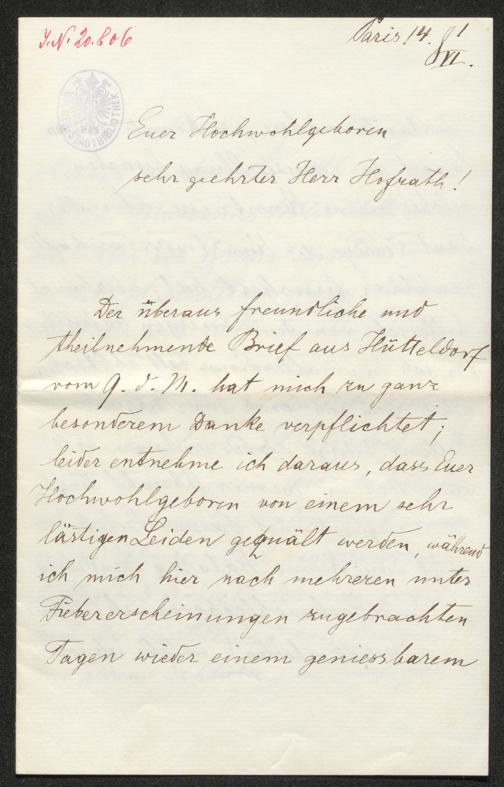 J.N. 20.806
Paris 14. 1/VI.
Euer Hochwohlgeboren
sehr geehrter Herr Hofrath!
Der überaus freundliche und
theilnehmende Brief aus Hütteldorf
vom 9. d. M. hat mich zu ganz
besonderem Danke verpflichtet;
leider entnehme ich daraus, dass Euer
Hochwohlgeboren von einem sehr
lästigen Leiden gequält werden, während
ich mich hier nach mehreren unter
Fiebererscheinungen zugebrachten
Tagen wieder einem geniessbarem